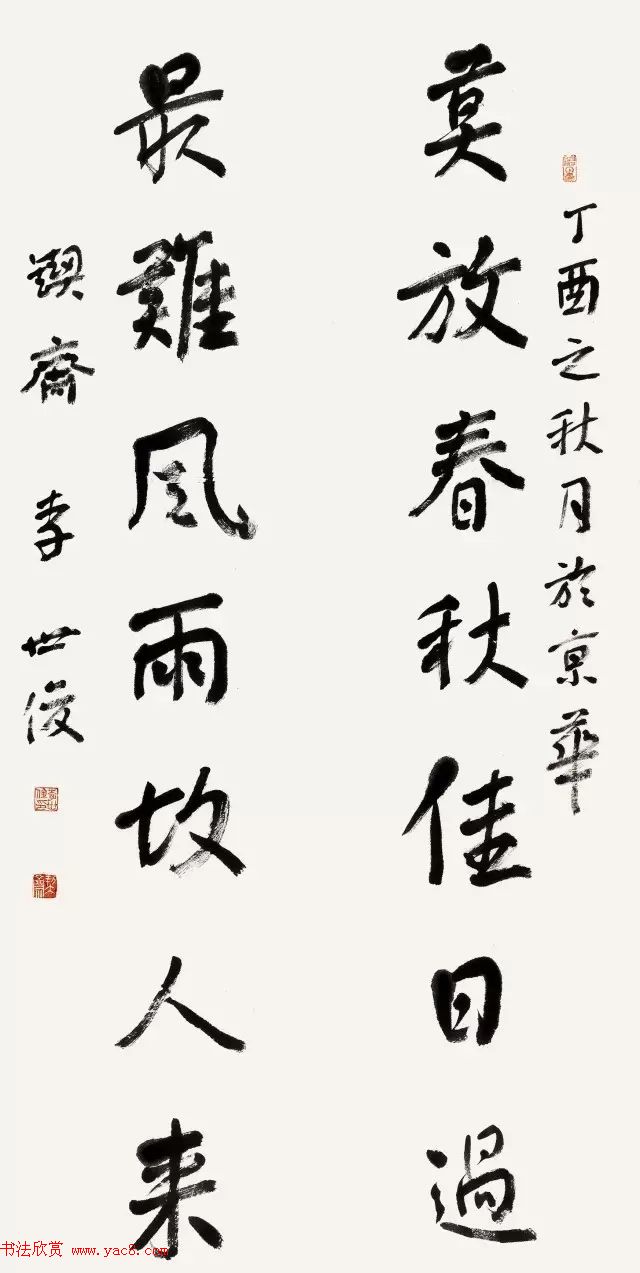 丁酉之秋月於京華
莫放春秋佳日過
最難風雨故人来
鍥齋 李世俊
书法欣赏 www.yac8.com